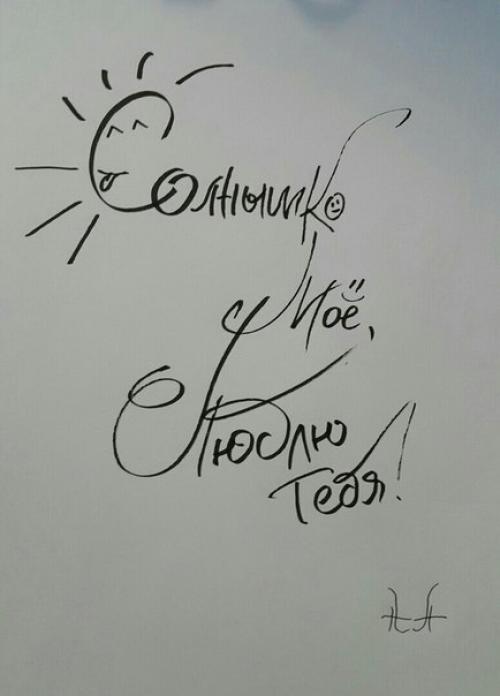 Солнышко
Моё,
Люблю
Тебя!